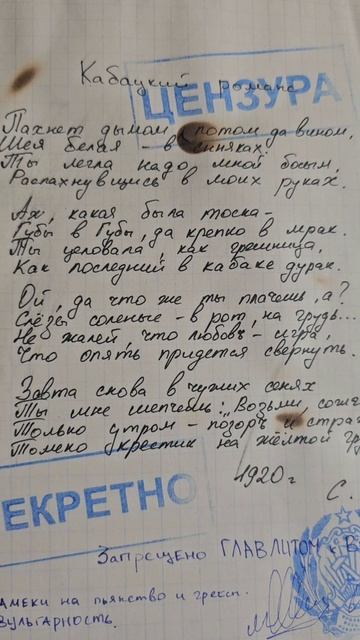 Кабацкий романс
ЦЕНЗУРА
Пахнет дымом, потом да вином,
Шея белая - в синяках.
Ты легла надо мной босым,
Распахнувшись в моих руках.
Ах, какая была тоска-
Губы в губы, да крепко в мрак.
Ты целовала, как грешница,
Как последний в кабаке дурак.
Ой, да что же ты плачешь, а?
Слёзы соленые - в рот, на грудь...
Не жалей, что любовь - игра,
Что опять придется свернуть.
Завтa снова в чужих сенях
Ты мне шепчешь: „Возьми,
Только утром - позоръ и
Томено крестик на жёлтой
1920г
С.
ЕКРЕТНО
Запрещено ГЛАВЛИТОМ
АМЕКИ на пьянство и грехи.
ВУЛЬГАРНОСТЬ.